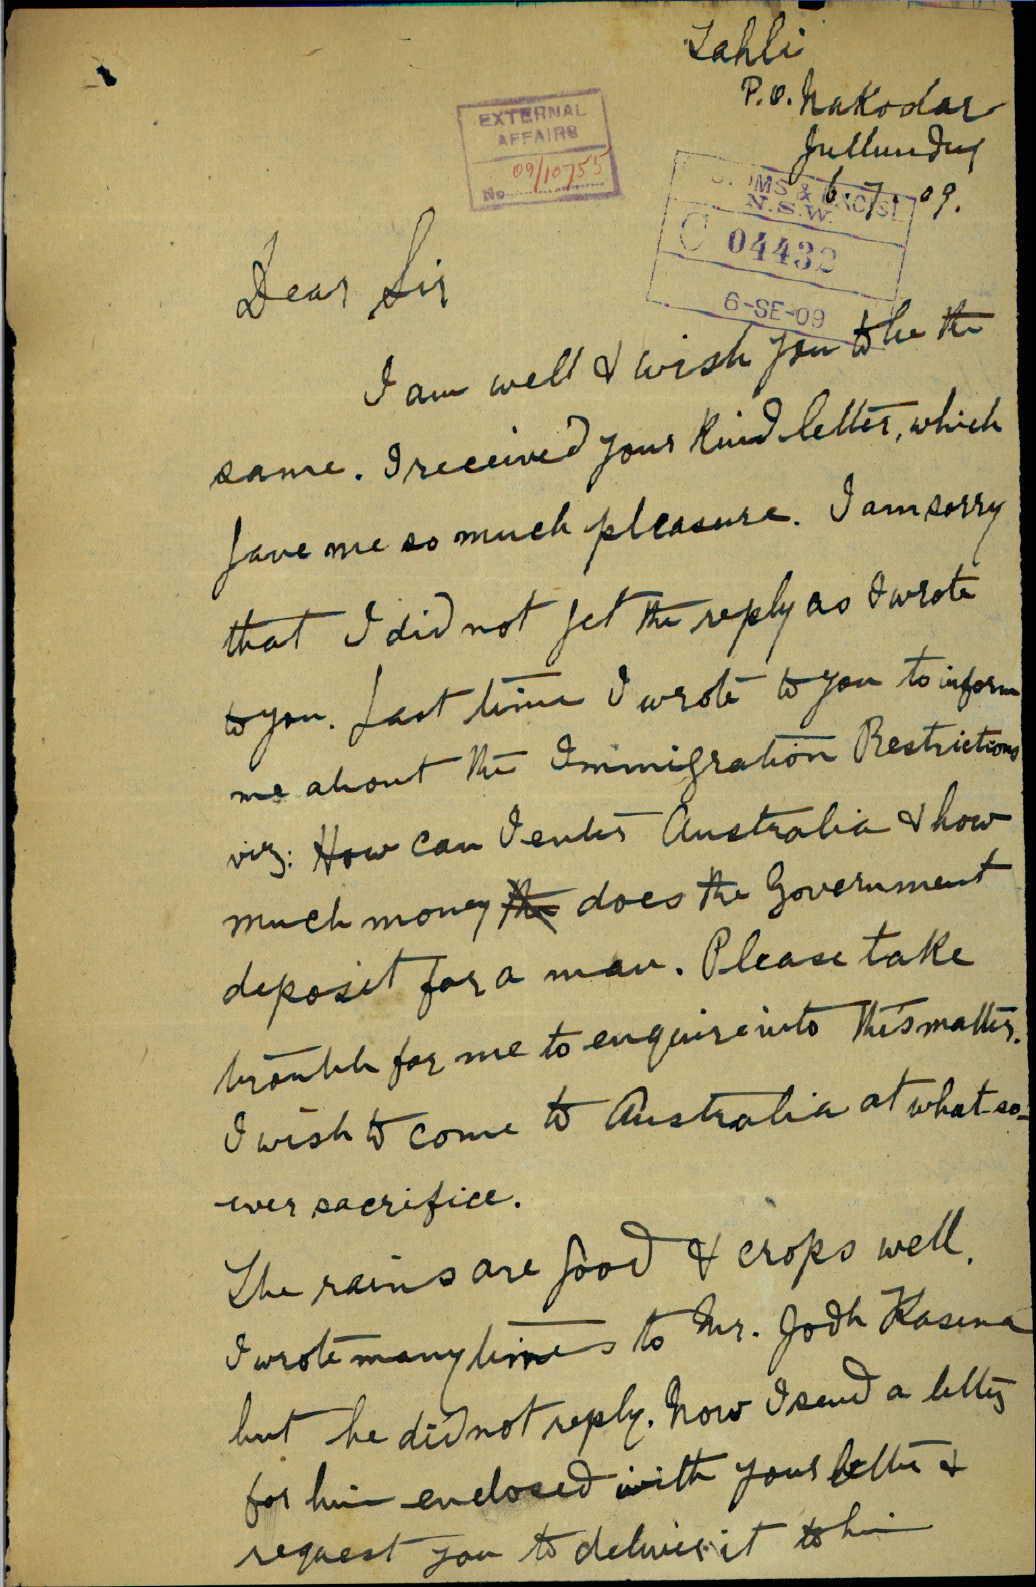 Lahli
P.O. Nakodar
Jullundur
6.7.09.
EXTERNAL
AFFAIRS
No 09/10755
N.S.W.
C 04432
6-SE-09
Dear Sir
I am well & wish you to be the
same. I received your kind letter, which
gave me so much pleasure. I am sorry
that I did not get the reply as I wrote
to you. Last time I wrote to you to inform
me about the Immigration Restrictions
viz: How can I enter Australia & how
much money the does the Government
deposit for a man. Please take
trouble for me to enquire into this matter.
I wish to come to Australia at what-so-
ever sacrifice.
The rains are good & crops well.
I wrote many times to Mr. Jodh
but he did not reply. Now I send a letter
for him enclosed with your letter &
request you to deliver it to him